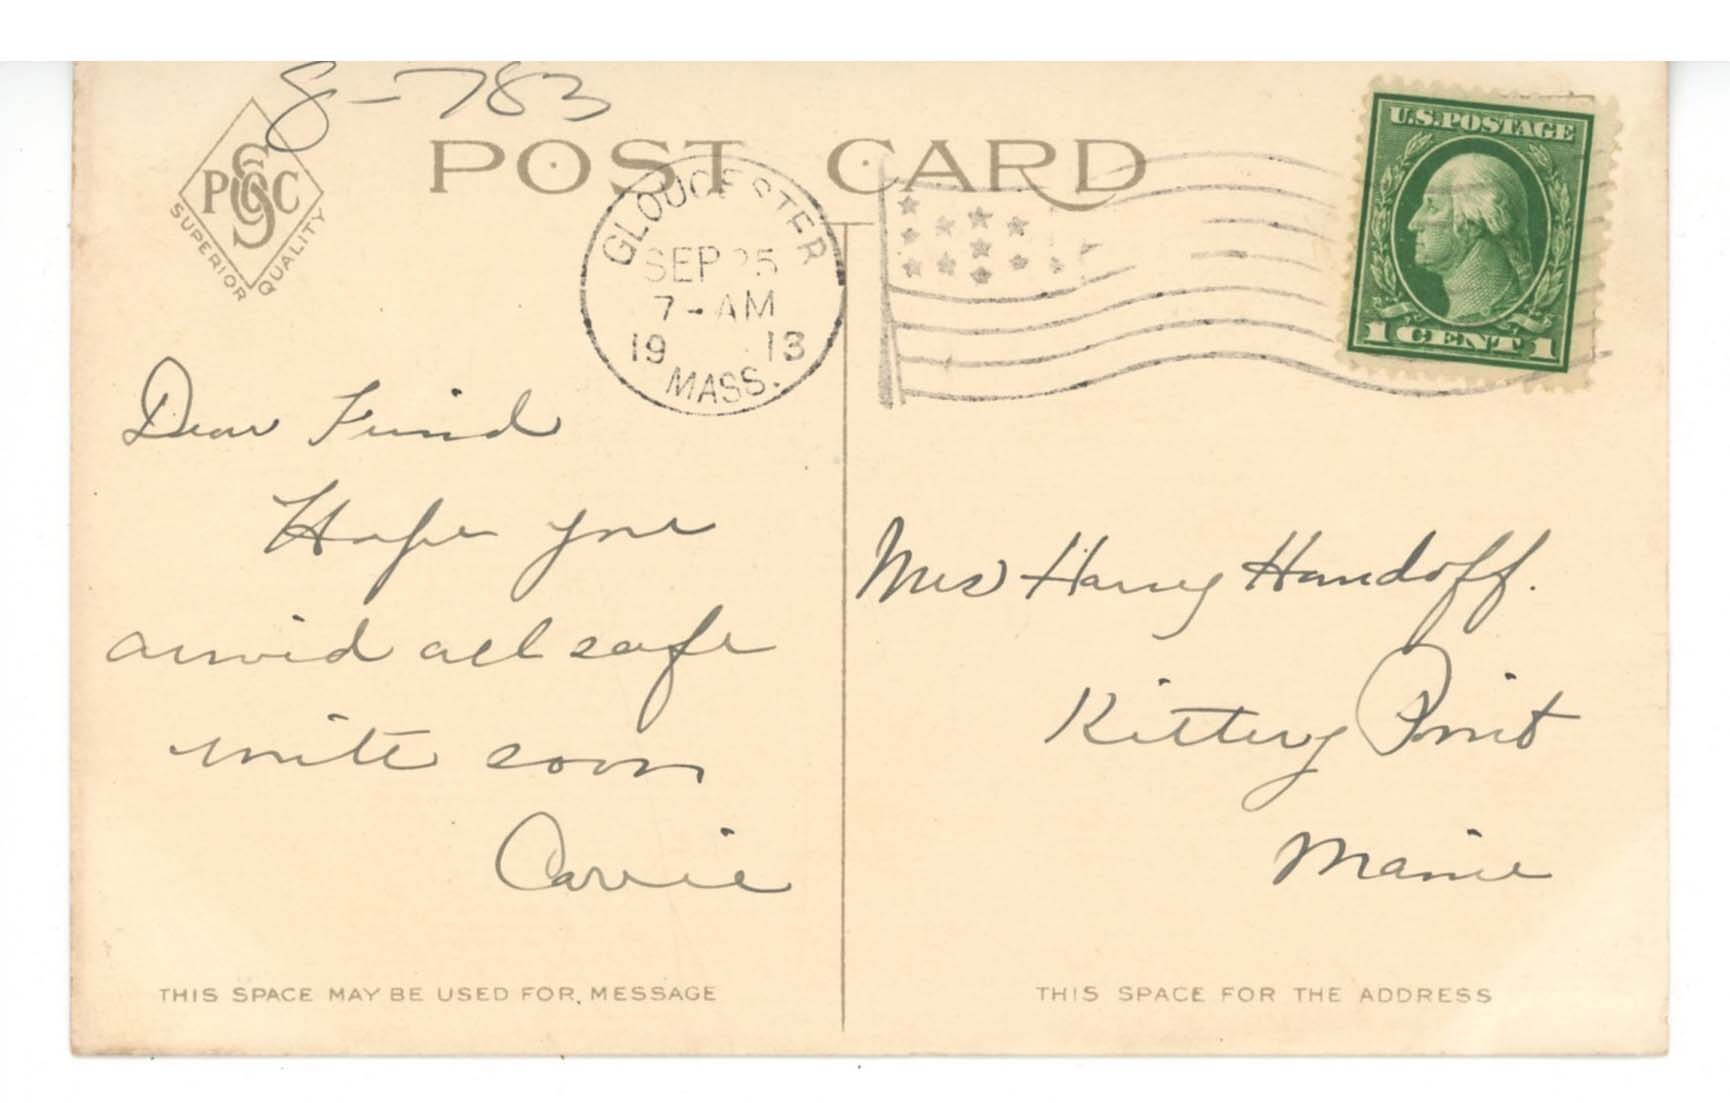 8-783
POST CARD
PSC
SUPERIOR QUALITY
GLOUCESTER
SEP 25
7-AM
19 13
MASS.
U.S. POSTAGE
1 CENT 1
Dear Friend
Hope you
arrived all safe
write soon
Carrie
Mrs Harry Handoff.
Kittery Point
Maine
THIS SPACE MAY BE USED FOR MESSAGE
THIS SPACE FOR THE ADDRESS